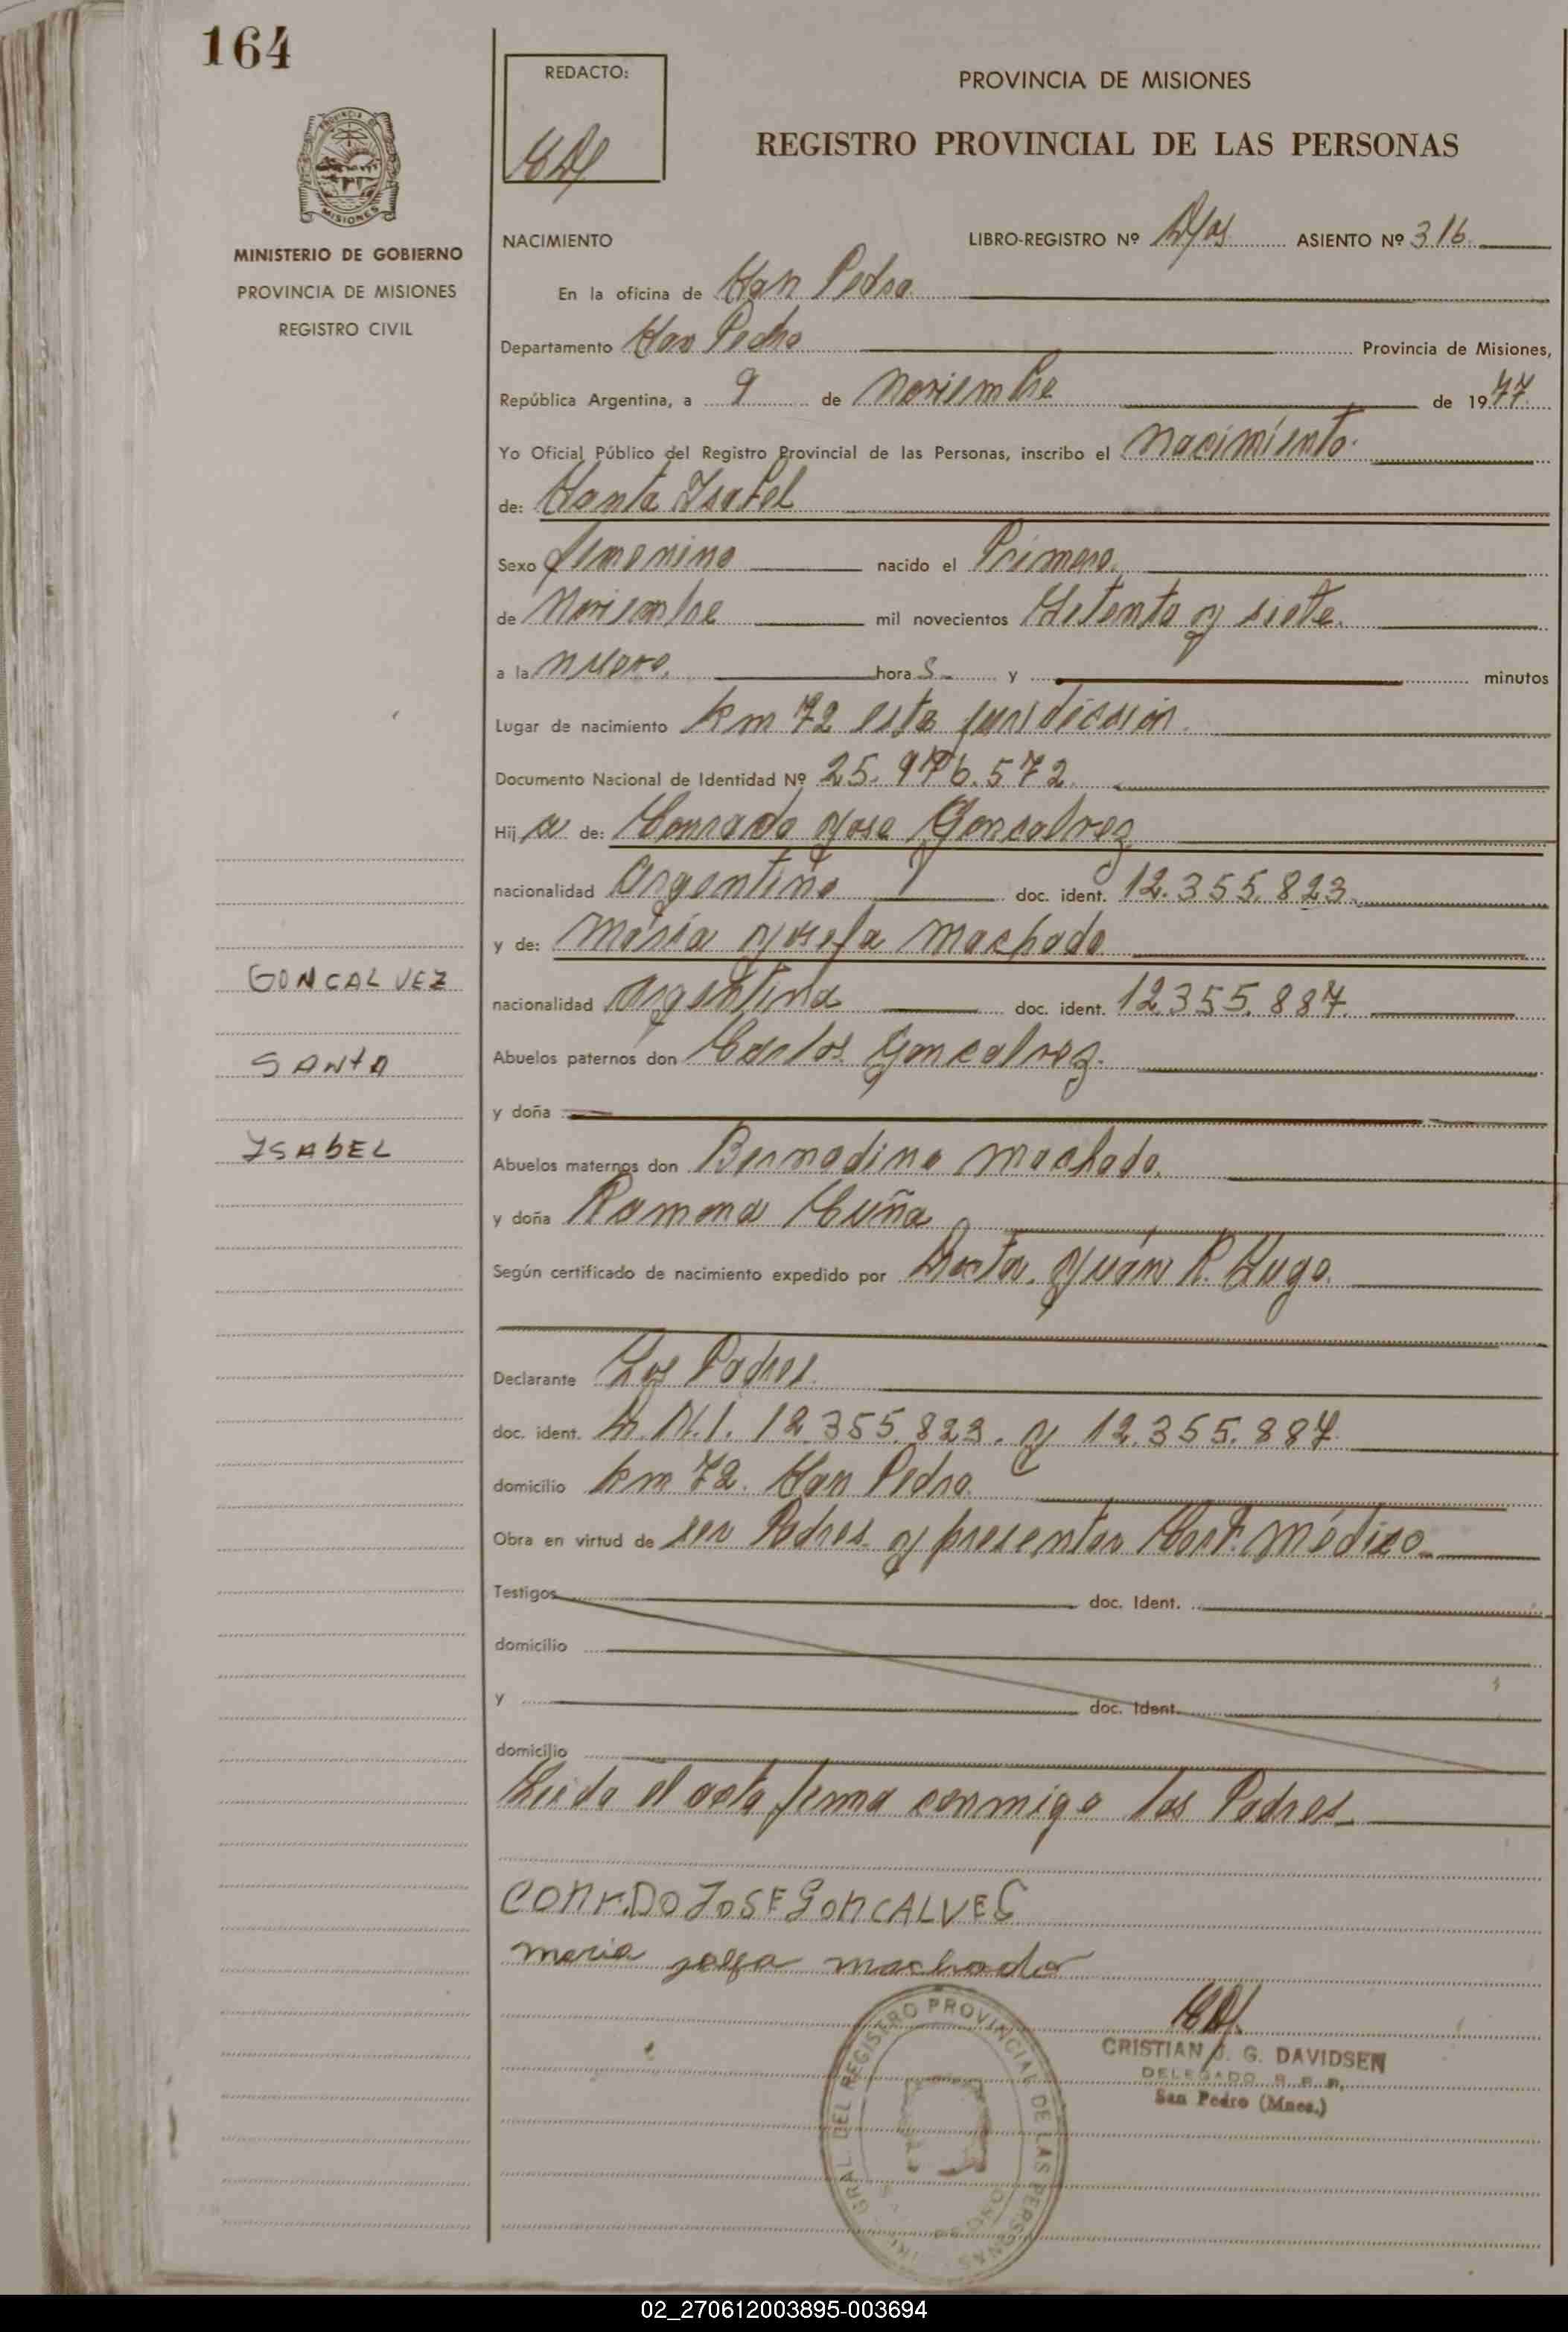 164
PROVINCIA DE MISIONES
MINISTERIO DE GOBIERNO
PROVINCIA DE MISIONES
REGISTRO CIVIL
GONCALVEZ
SANTA
YSABEL
REDACTO:
PROVINCIA DE MISIONES
REGISTRO PROVINCIAL DE LAS PERSONAS
NACIMIENTO LIBRO-REGISTRO Nº Dos ASIENTO Nº 316
En la oficina de San Pedro
Departamento San Pedro Provincia de Misiones,
República Argentina, a 9 de Noviembre de 1977
Yo Oficial Público del Registro Provincial de las Personas, inscribo el nacimiento
de: Santa Ysabel
Sexo femenino nacido el Primero
de Noviembre mil novecientos Setenta y siete.
a la nueve hora s y minutos
Lugar de nacimiento km 72 esta jurisdicción
Documento Nacional de Identidad Nº 25.976.572
Hij a de: Conrado Jose Goncalvez
nacionalidad Argentino doc. ident. 12.355.823
y de: María Josefa Machado
nacionalidad Argentina doc. ident. 12.355.887
Abuelos paternos don Carlos Goncalvez
y doña
Abuelos maternos don Bernadino Machado
y doña Ramona Cuña
Según certificado de nacimiento expedido por Juán R. Lugo.
Declarante Los Padres
doc. ident. D.N.I. 12.355.823. y 12.355.887
domicilio km 72. San Pedro
Obra en virtud de ser Padres y presentar Cert. médico
Testigos doc. Ident.
domicilio
y doc. Ident.
domicilio
Leida el acta firma conmigo los Padres
CONrDO JOSE GONCALVES
maria josefa machado
CRISTIAN J. G. DAVIDSEN
DELEGADO R. P. P.
San Pedro (Mnes.)
GRAL DEL REGISTRO PROVINCIAL DE LAS PERSONAS
02_270612003895-003694